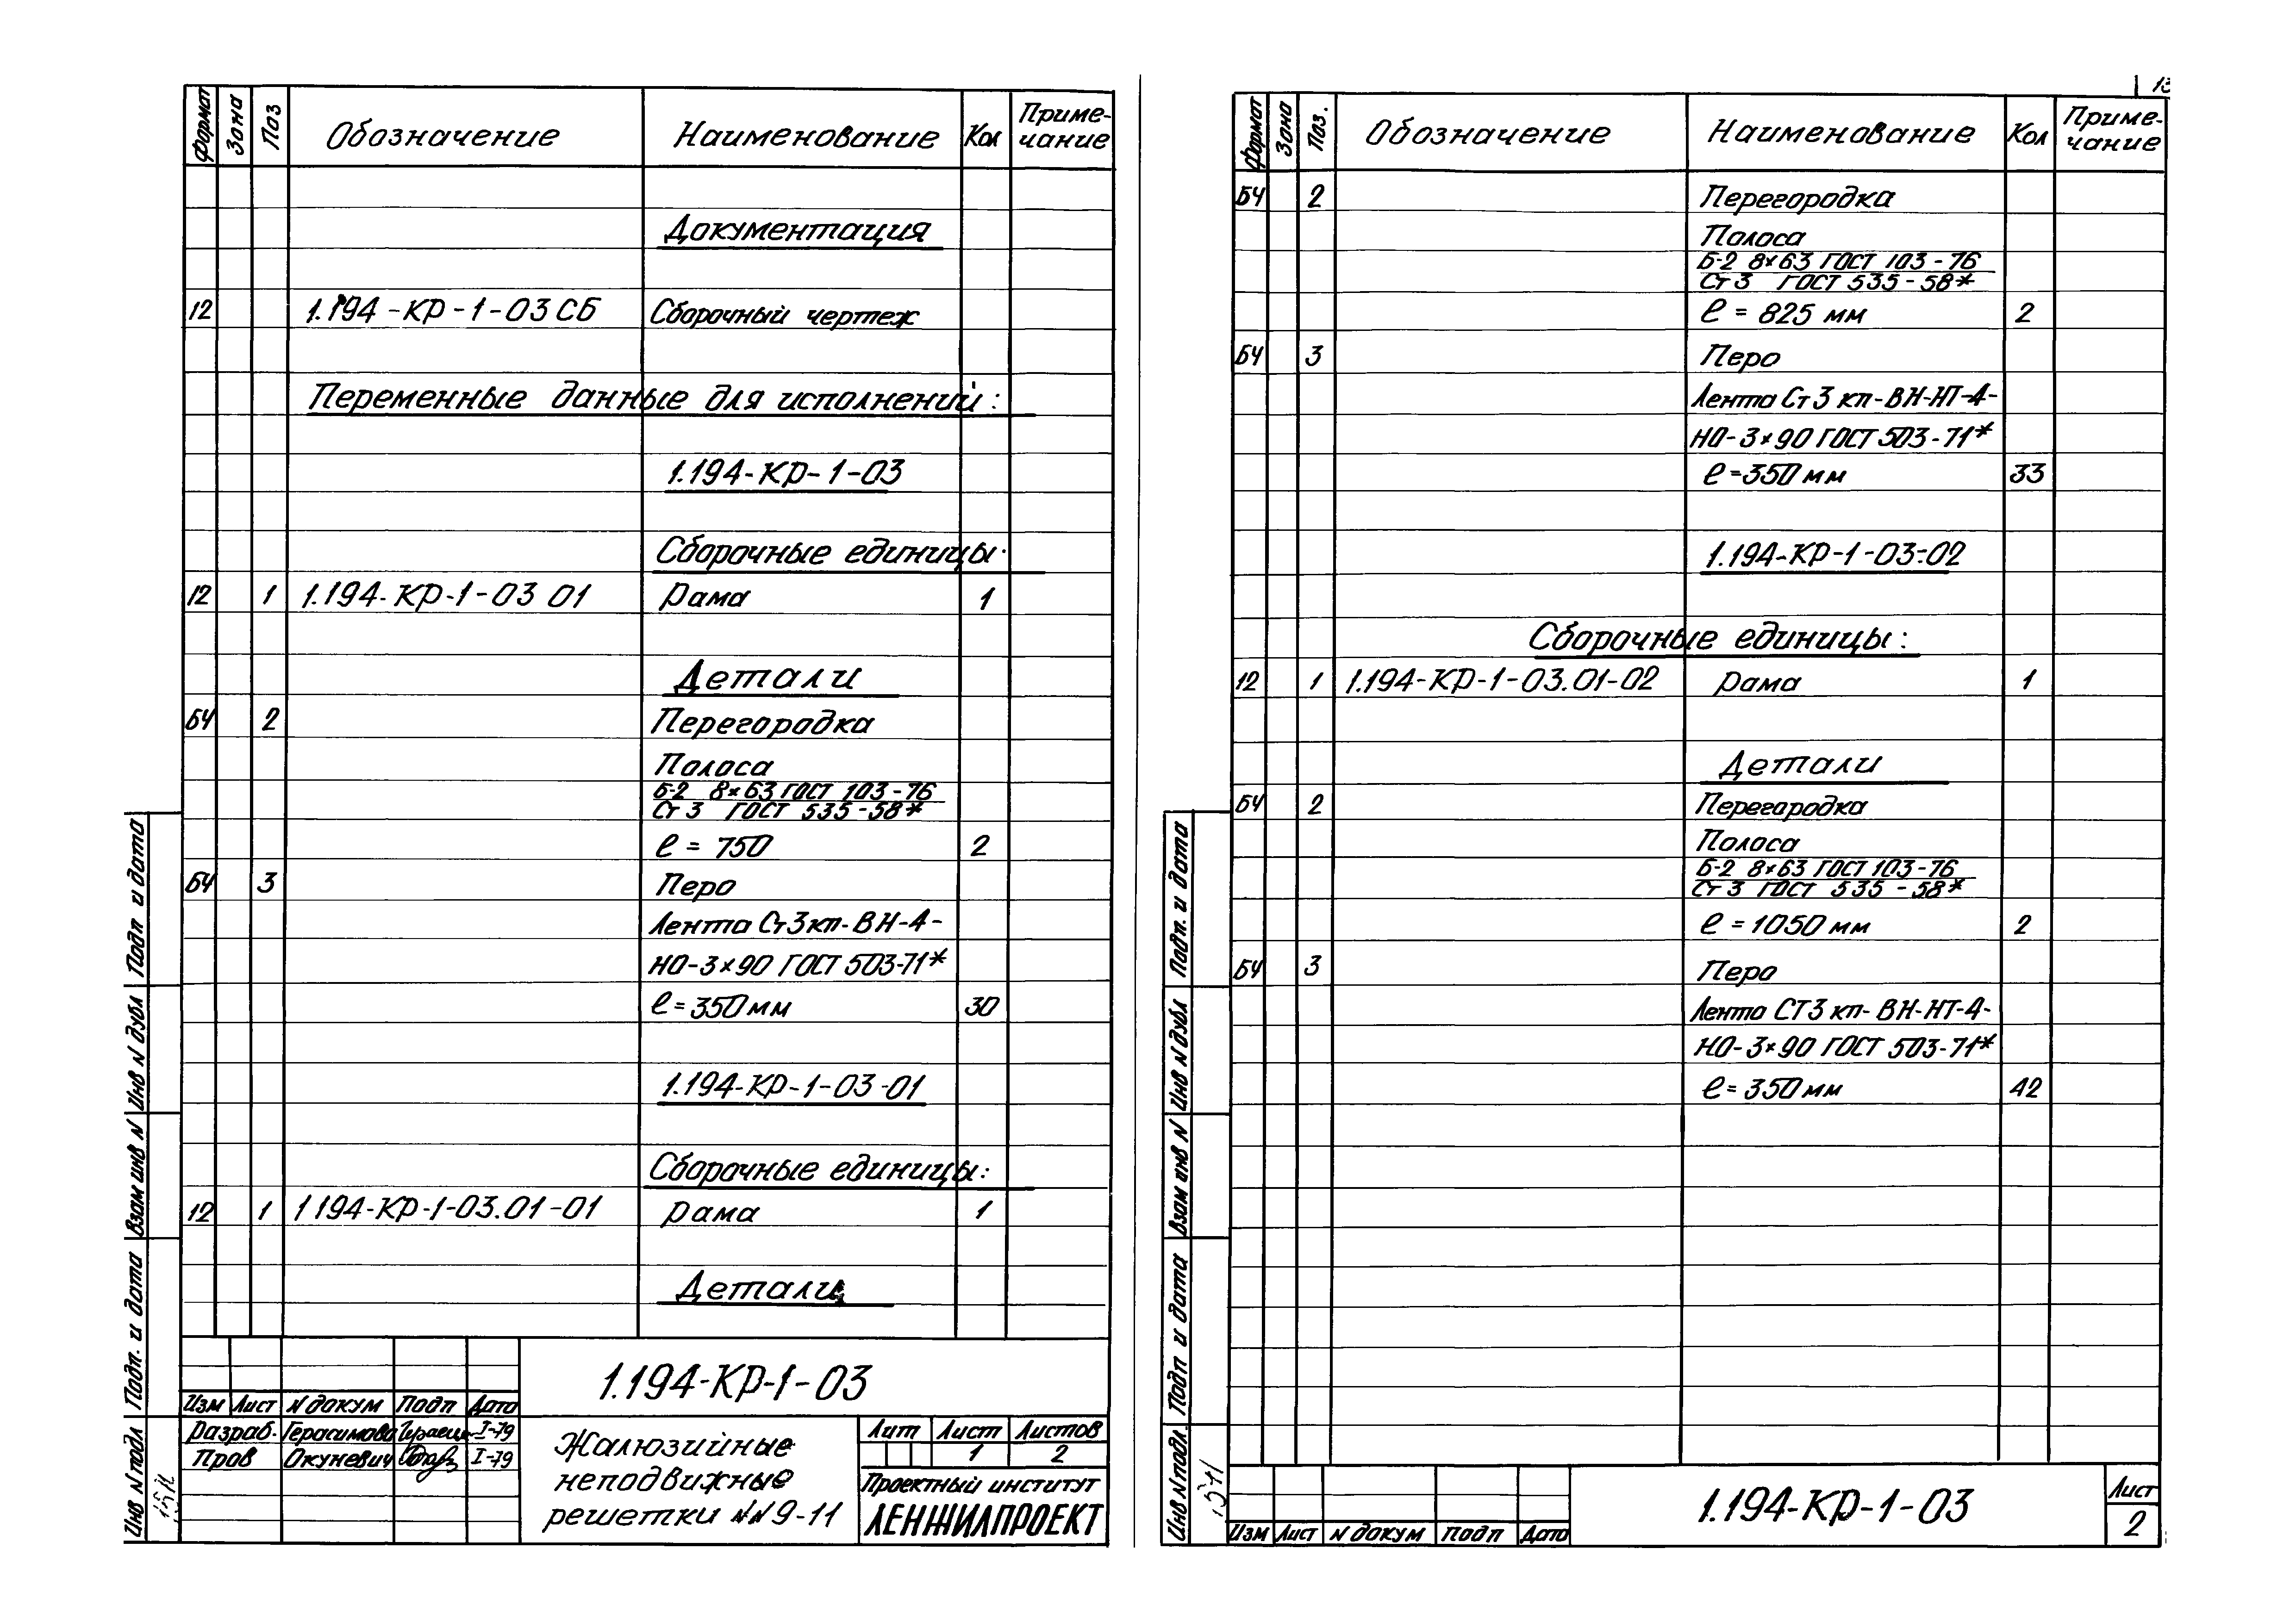 Формат Зона Поз Обозначение Наименование Кол Приме-
чание
Документация
12 1.194-КР-1-03 СБ Сборочный чертеж
Переменные данные для исполнений:
1.194-КР-1-03
Сборочные единицы:
12 1 1.194-КР-1-03 01 Рама 1
Детали
БЧ 2 Перегородка
Полоса
Б-2 8×63 ГОСТ 103-76
Ст 3 ГОСТ 535-58*
ℓ = 750 2
БЧ 3 Перо
Лента Ст3кп-ВН-4-
НО-3×90 ГОСТ 503-71*
ℓ=350мм 30
1.194-КР-1-03-01
Сборочные единицы:
12 1 1194-КР-1-03.01-01 Рама 1
Детали
Подп и дата
Инв N дубл
Взам инв N
Подп. и дата
Инв N подл
1.194-КР-1-03
Изм Лист N докум Подп Дата
Разраб. Герасимова I-79
Пров Окуневич I-79
Жалюзийные
неподвижные
решетки NN 9-11
Лит Лист Листов
1 2
Проектный институт
ЛЕНЖИЛПРОЕКТ
Формат Зона Поз. Обозначение Наименование Кол Приме-
чание
БЧ 2 Перегородка
Полоса
Б-2 8×63 ГОСТ 103-76
Ст 3 ГОСТ 535-58*
ℓ = 825 мм 2
БЧ 3 Перо
Лента Ст3 кп-ВН-НТ-4-
НО-3×90 ГОСТ 503-71*
ℓ=350мм 33
1.194-КР-1-03-02
Сборочные единицы:
12 1 1.194-КР-1-03.01-02 Рама 1
Детали
БЧ 2 Перегородка
Полоса
Б-2 8×63 ГОСТ 103-76
Ст 3 ГОСТ 535-58*
ℓ = 1050 мм 2
БЧ 3 Перо
Лента СТ3 кп-ВН-НТ-4-
НО-3×90 ГОСТ 503-71*
ℓ=350мм 42
Подп. и дата
Инв N дубл
Взам инв N
Подп и дата
Инв N подл.
Изм Лист N докум Подп Дата
1.194-КР-1-03
Лист
2